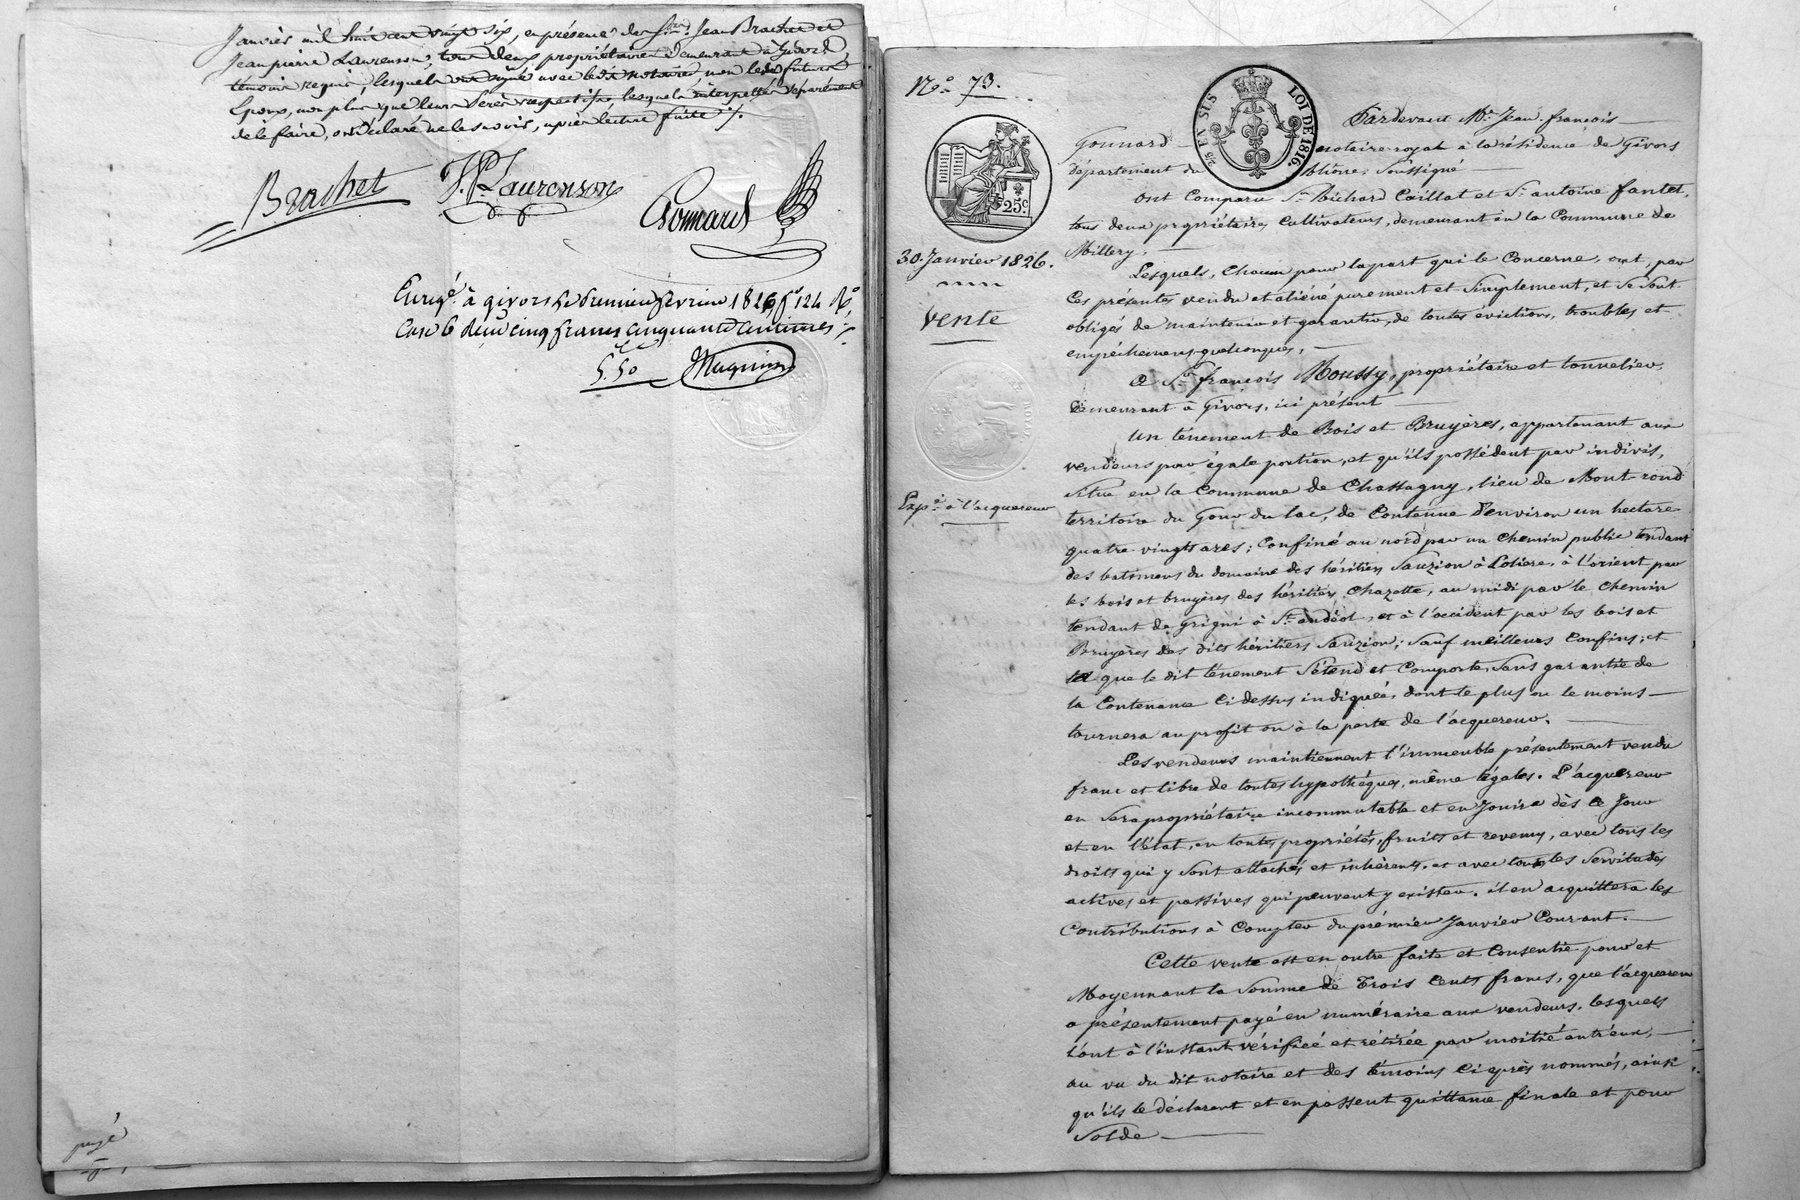 Janvier mil huit cent vingt six, en présence de Srs. Jean Brachet et
Jean pierre Laurenson, tous deux propriétaires demeurant à Givors,
témoins requis, lesquels ont signé avec le dt notaire, non les dts futurs
Epoux, non plus que leurs Pères respectifs, lesquels interpellés séparément
de le faire, ont déclaré ne le savoir, après lecture faite ./.
Brachet J.P Laurenson Gonnard
Enregé. à givors le premier février 1826 fo 124 Ro,
Case 6 reçu cinq francs cinquante centimes
5.50
payé
No. 73.
EN SUS LOI DE 1816.
25c
30. Janvier 1826.
Vente
Expé. à l'acquereur
Pardevant Me. Jean-françois
Gonnard notaire royal à la résidence de Givors
département du Rhône, Soussigné
Ont Comparu Sr. Richard Caillat et Sr. antoine fantet,
tous deux propriétaires Cultivateurs, demeurant en la Commune de
Millery.
Lesquels, Chacun pour la part qui le Concerne, ont, par
Ces présentes vendu et aliéné purement et Simplement, et Se Sont
obligés de maintenir et garantir, de toutes evictions, troubles et
empêchemens quelconques,
à Sr. françois Moussy, propriétaire et tonnelier,
demeurant à Givors, ici présent
Un ténement de Bois et Bruyères, appartenant aux
vendeurs pour égale portion, et qu'ils possédent par indivis,
Situé en la Commune de Chassagny, lieu de Mont-rond
territoire du Gour du lac, de Contenue d'environ un hectare
quatre-vingts ares; Confiné au nord par un Chemin public tendant
des batimens du domaine des héritiers Sauzion à Lolière, à l'orient par
les bois et bruyères des héritiers Chazotte, au midi par le Chemin
tendant de Grigni à St. andéol, et à l'occident par les bois et
Bruyères des dits héritiers Sauzion; Sauf meilleurs Confins; et
tel que le dit ténement S'étend et Comporte, Sans garantie de
la Contenance Ci dessus indiquée, dont le plus ou le moins
tournera au profit ou à la perte de l'acquereur.
Les vendeurs maintiennent l'immeuble présentement vendu
franc et libre de toutes hypothéques, même légales. L'acquereur
en Sera propriétaire incommutable et en Jouira dès Ce Jour
et en l'état, en toutes propriétés, fruits et revenus, avec tous les
droits qui y Sont attachés et inhérents, et avec toutes les Servitudes
actives et passives qui peuvent y exister. il en acquittera les
Contributions à Compter du prémier Janvier Courant.
Cette vente est en outre faite et Consentie pour et
Moyennant la Somme de Trois Cents francs, que l'acquereur
a présentement payé en numéraire aux vendeurs, lesquels
l'ont à l'instant vérifiée et rétirée par moitié entr'eux,
au vu du dit notaire et des témoins Ci après nommés, ainsi
qu'ils le déclarent et en passent quittance finale et pour
Solde